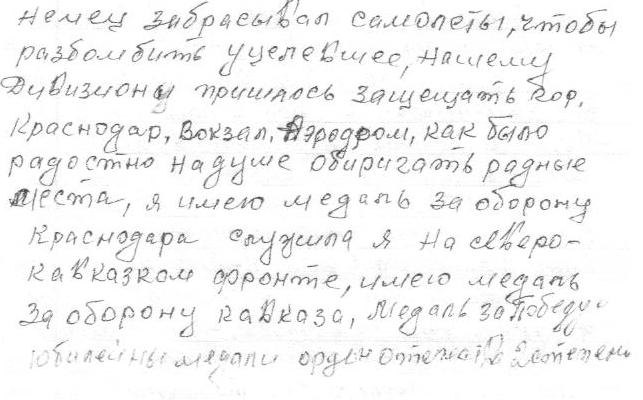 немец забрасывал самолеты, чтобы
разбомбить уцелевшее, нашему
Дивизиону пришлось защещать гор.
Краснодар, Вокзал, Аэродром, как было
радостно на душе обиригать радные
места, я имею медаль за оборону
Краснодара служила я на северо-
кавказком фронте, имею медаль
за оборону кавказа, Медаль за Победу и
юбилейны медали орден 2 степени